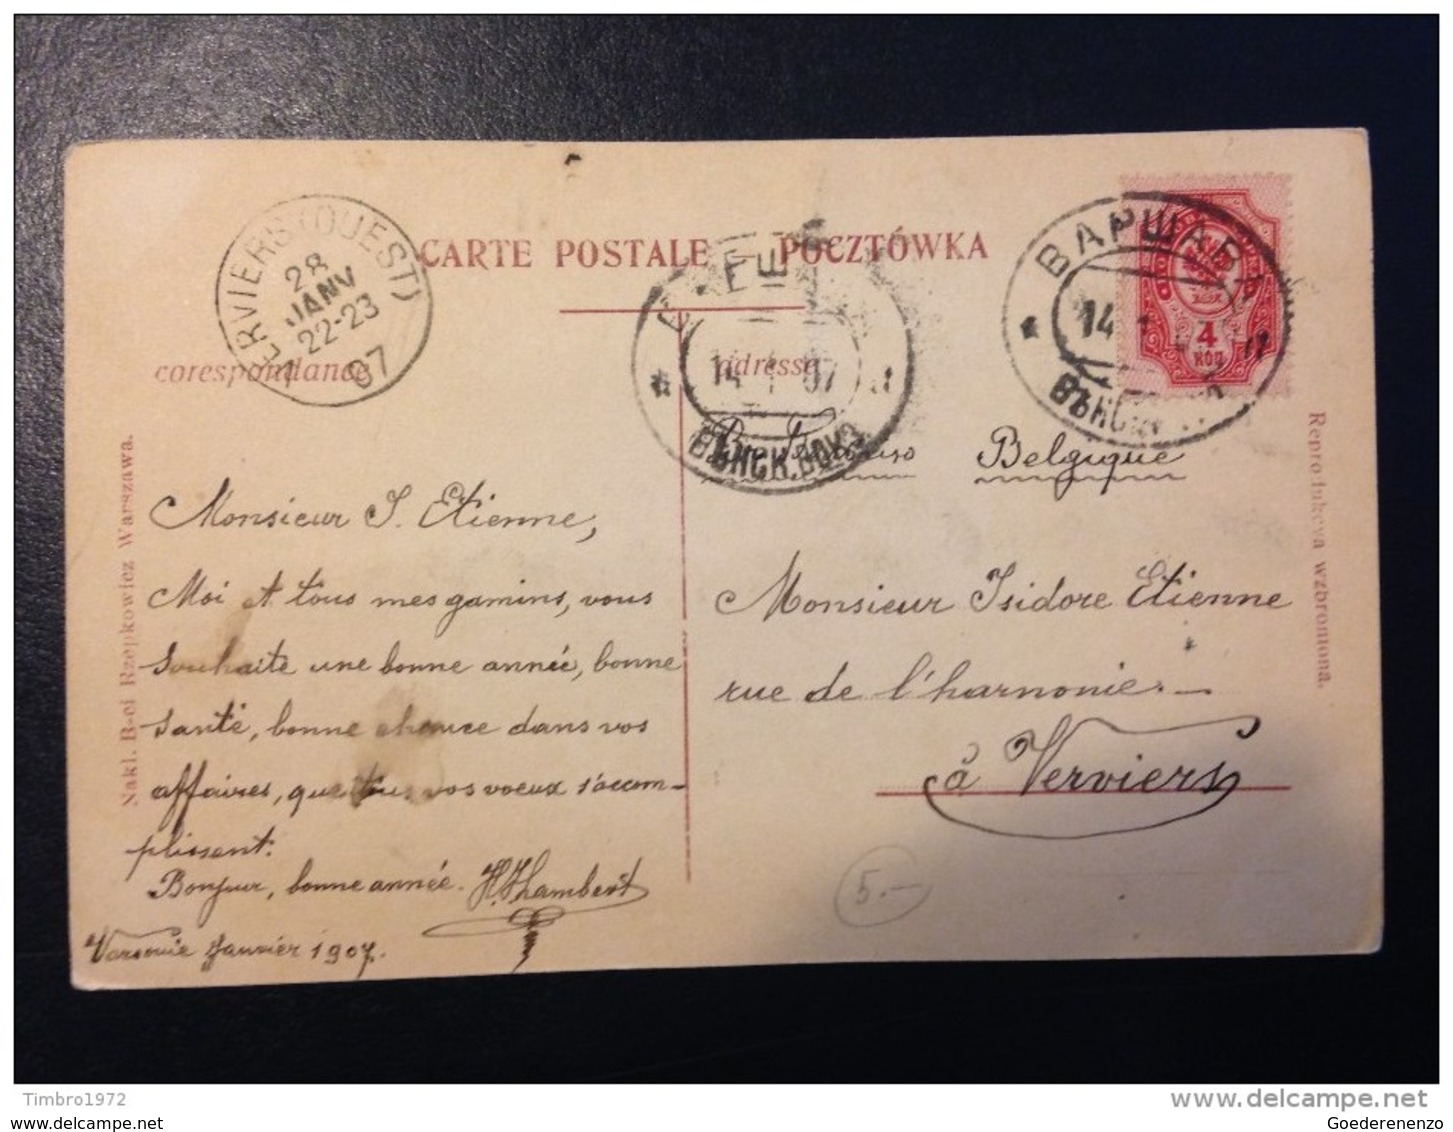 CARTE POSTALE POCZTÓWKA
VERVIERS (OUEST)
28
JANV
22-23
07
ВАРШАВА
14
4
КОП
14 1 07
ВѢНСК.ВОКЗ
corespondance
adresse
Belgique
Monsieur J. Etienne,
Moi et tous mes gamins, vous
souhaite une bonne année, bonne
santé, bonne chance dans vos
affaires, que tous vos voeux s'accom-
plissent.
Bonjour, bonne année. H. Lambert
Varsovie Janvier 1907.
Monsieur Isidore Etienne
rue de l'harmonie.
à Verviers
5.-
Nakl. B-ci Rzepkowicz Warszawa.
Reprodukcya wzbroniona.
Timbro1972
www.delcampe.net
www.delcampe.net
Goederenenzo